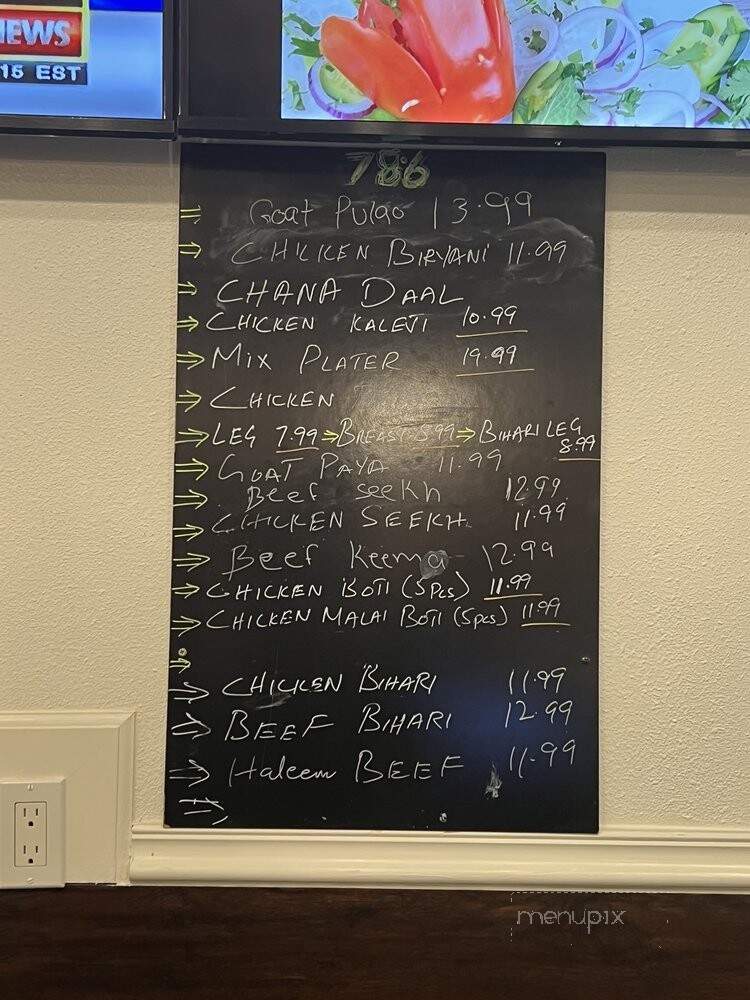 NEWS
15 EST
786
⇒ Goat Pulao 13.99
⇒ CHICKEN BIRYANI 11.99
⇒ CHANA DAAL
⇒ CHICKEN KALEJI 10.99
⇒ MIX PLATER 19.99
⇒ CHICKEN
⇒ LEG 7.99 ⇒ BREAST 8.99 ⇒ BIHARI LEG 8.99
⇒ GOAT PAYA 11.99
⇒ Beef seekh 12.99
⇒ CHICKEN SEEKH 11.99
⇒ Beef Keema 12.99
⇒ CHICKEN BOTI (5pcs) 11.99
⇒ CHICKEN MALAI BOTI (5pcs) 11.99
⇒
⇒ CHICKEN BIHARI 11.99
⇒ BEEF BIHARI 12.99
⇒ Haleem BEEF 11.99
⇒
menupix